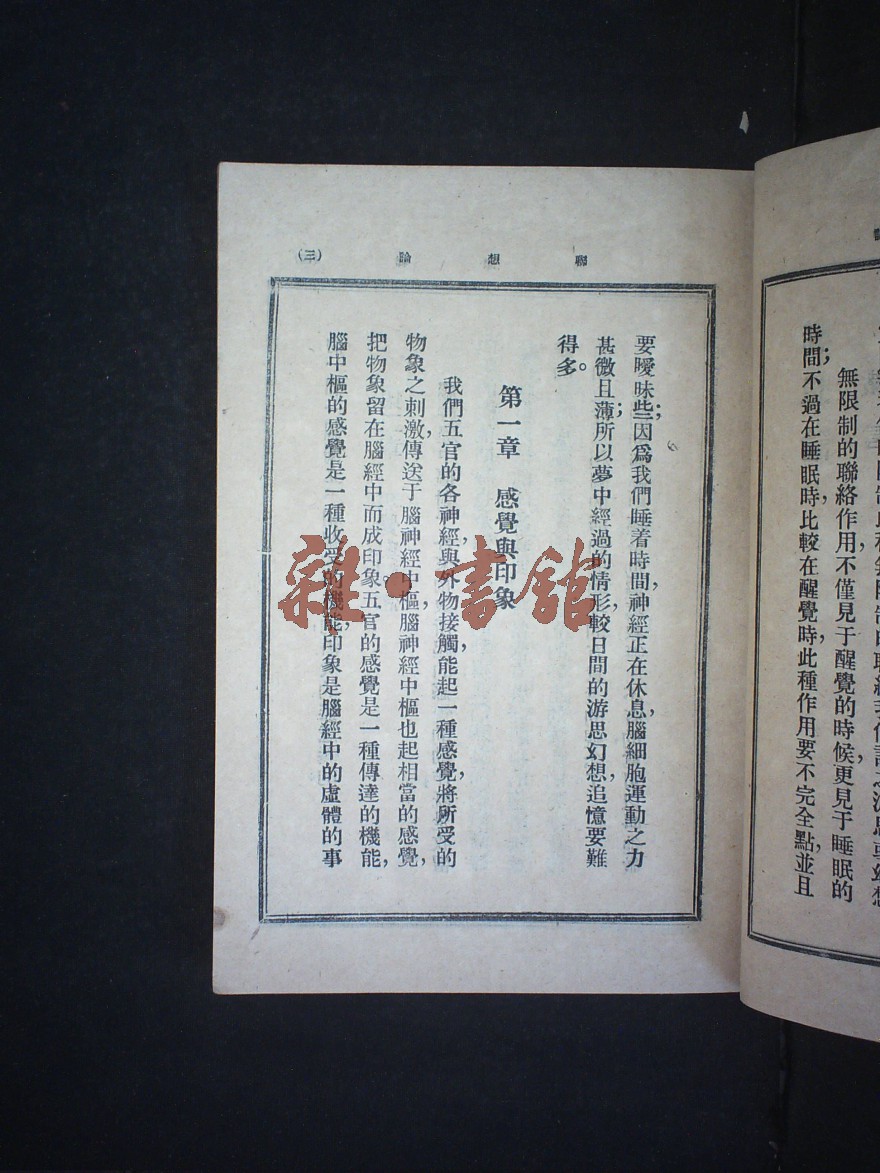 時間;不過在睡眠時,比較在醒覺時,此種作用要不完全點,並且
無限制的聯絡作用,不僅見于醒覺的時候,更見于睡眠的
聯想論
(三)
要曖昧些;因爲我們睡着時間,神經正在休息,腦細胞運動之力
甚微且薄;所以夢中經過的情形,較日間的游思幻想,追憶要難
得多。
第一章 感覺與印象
我們五官的各神經,與外物接觸,能起一種感覺,將所受的
物象之刺激,傳送于腦神經中樞,腦神經中樞也起相當的感覺,
把物象留在腦經中而成印象。五官的感覺是一種傳達的機能,
腦中樞的感覺是一種收受的機能,印象是腦經中的虛體的事
雜·書館